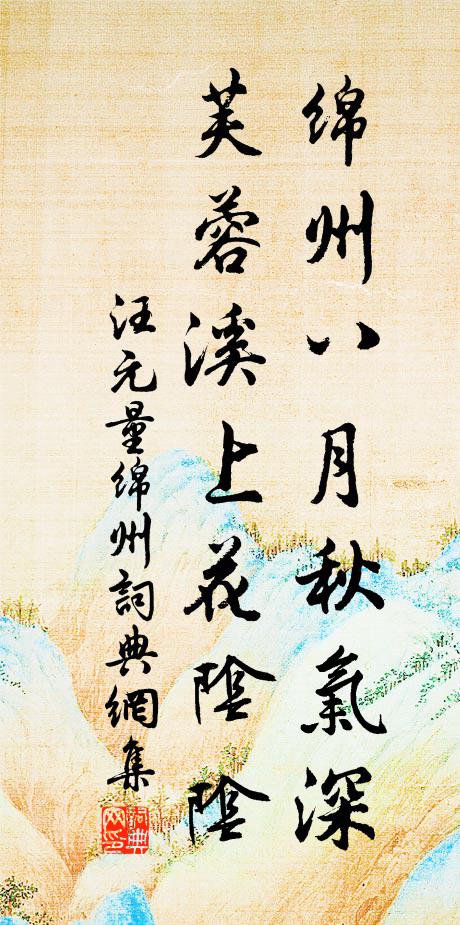 绵州八月秋氣深
芙蓉溪上花陰陰
汪元量绵州詞典網集
詞典网印